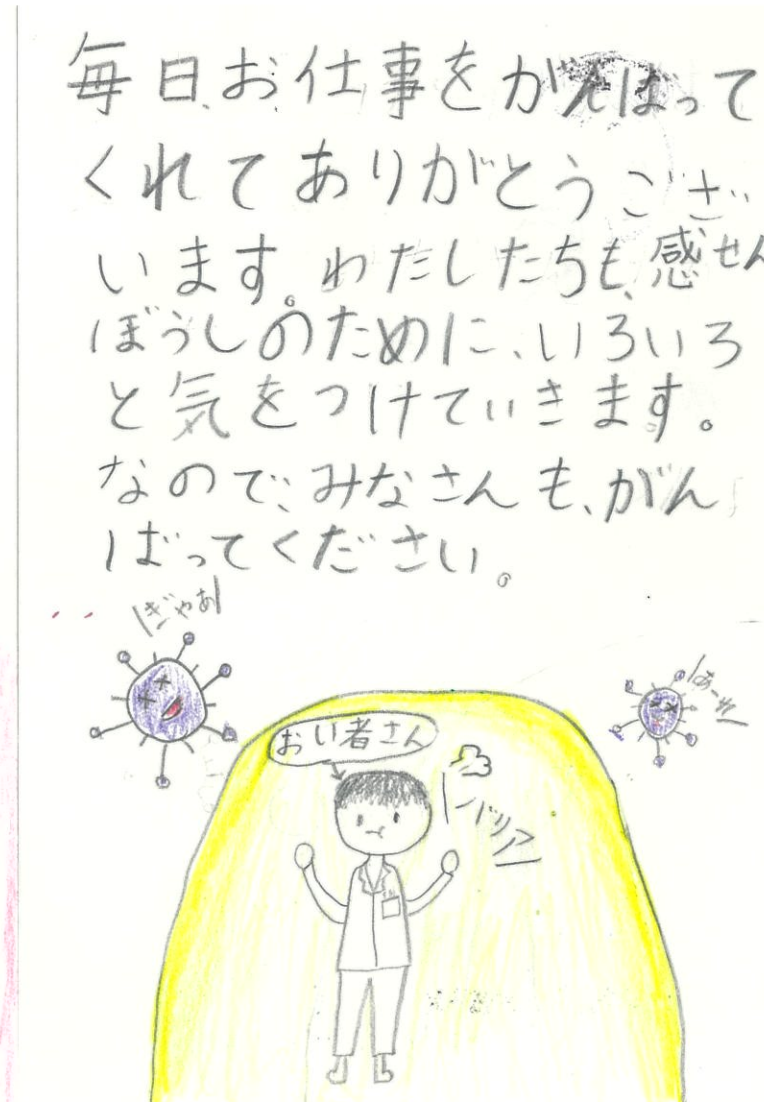 毎日、お仕事をがんばって
くれてありがとうござ
います。わたしたちも、感せん
ぼうしのために、いろいろ
と気をつけていきます。
なので、みなさんも、がん
ばってください。
ぎゃあ
あーれー
おい者さん
バリアー